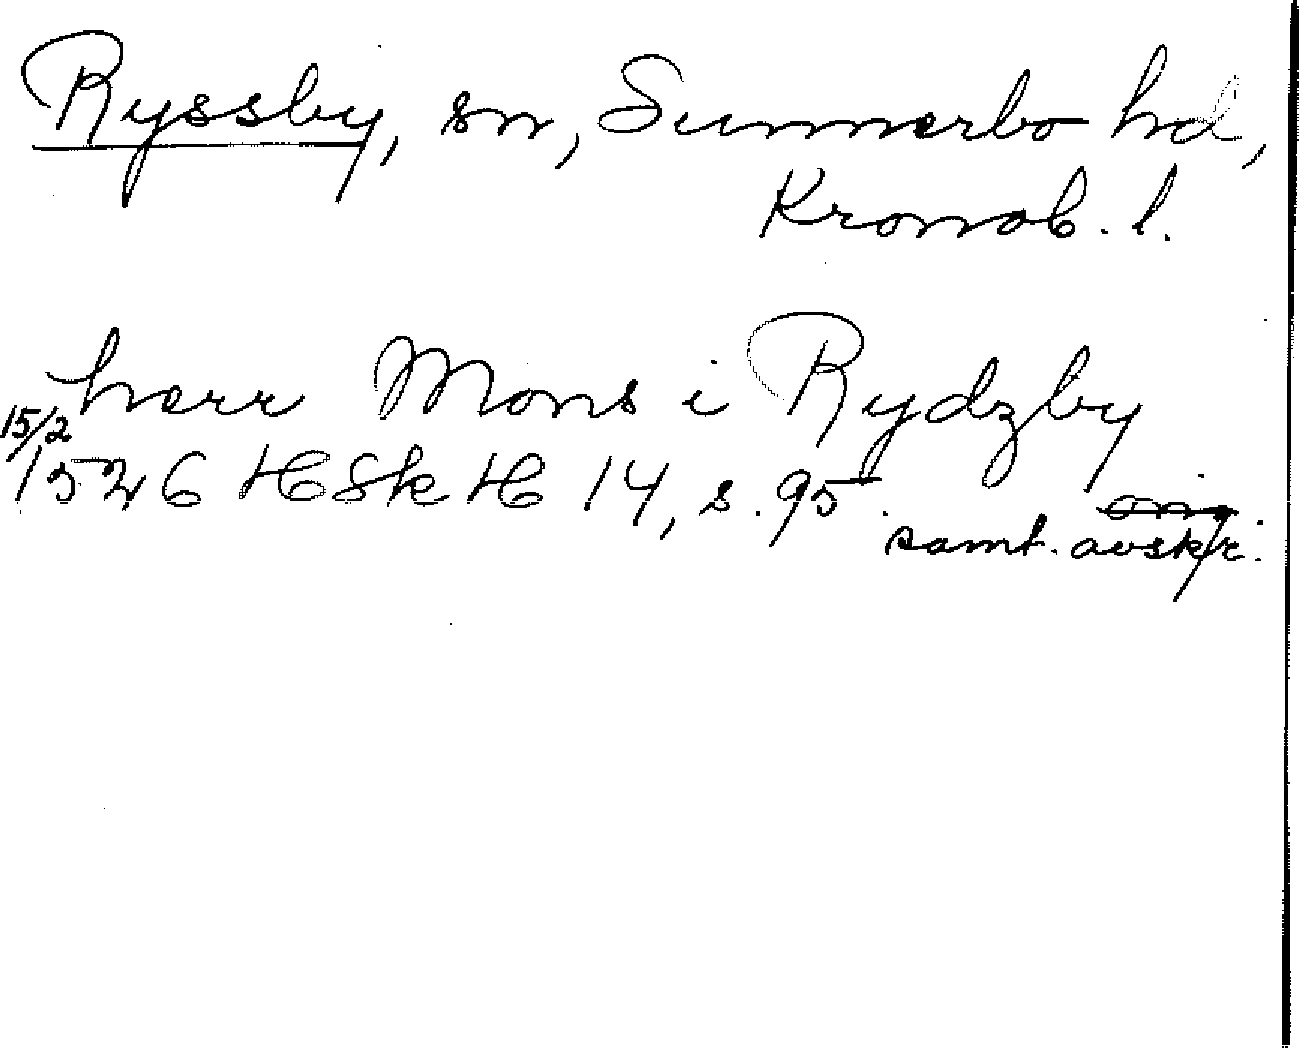 Ryssby, sn, Sunnerbo hd,
Kronob. l.
herr Mons i Rydzby
15/2
1526 HSkH 14, s. 95. orig.
samt. avskr.